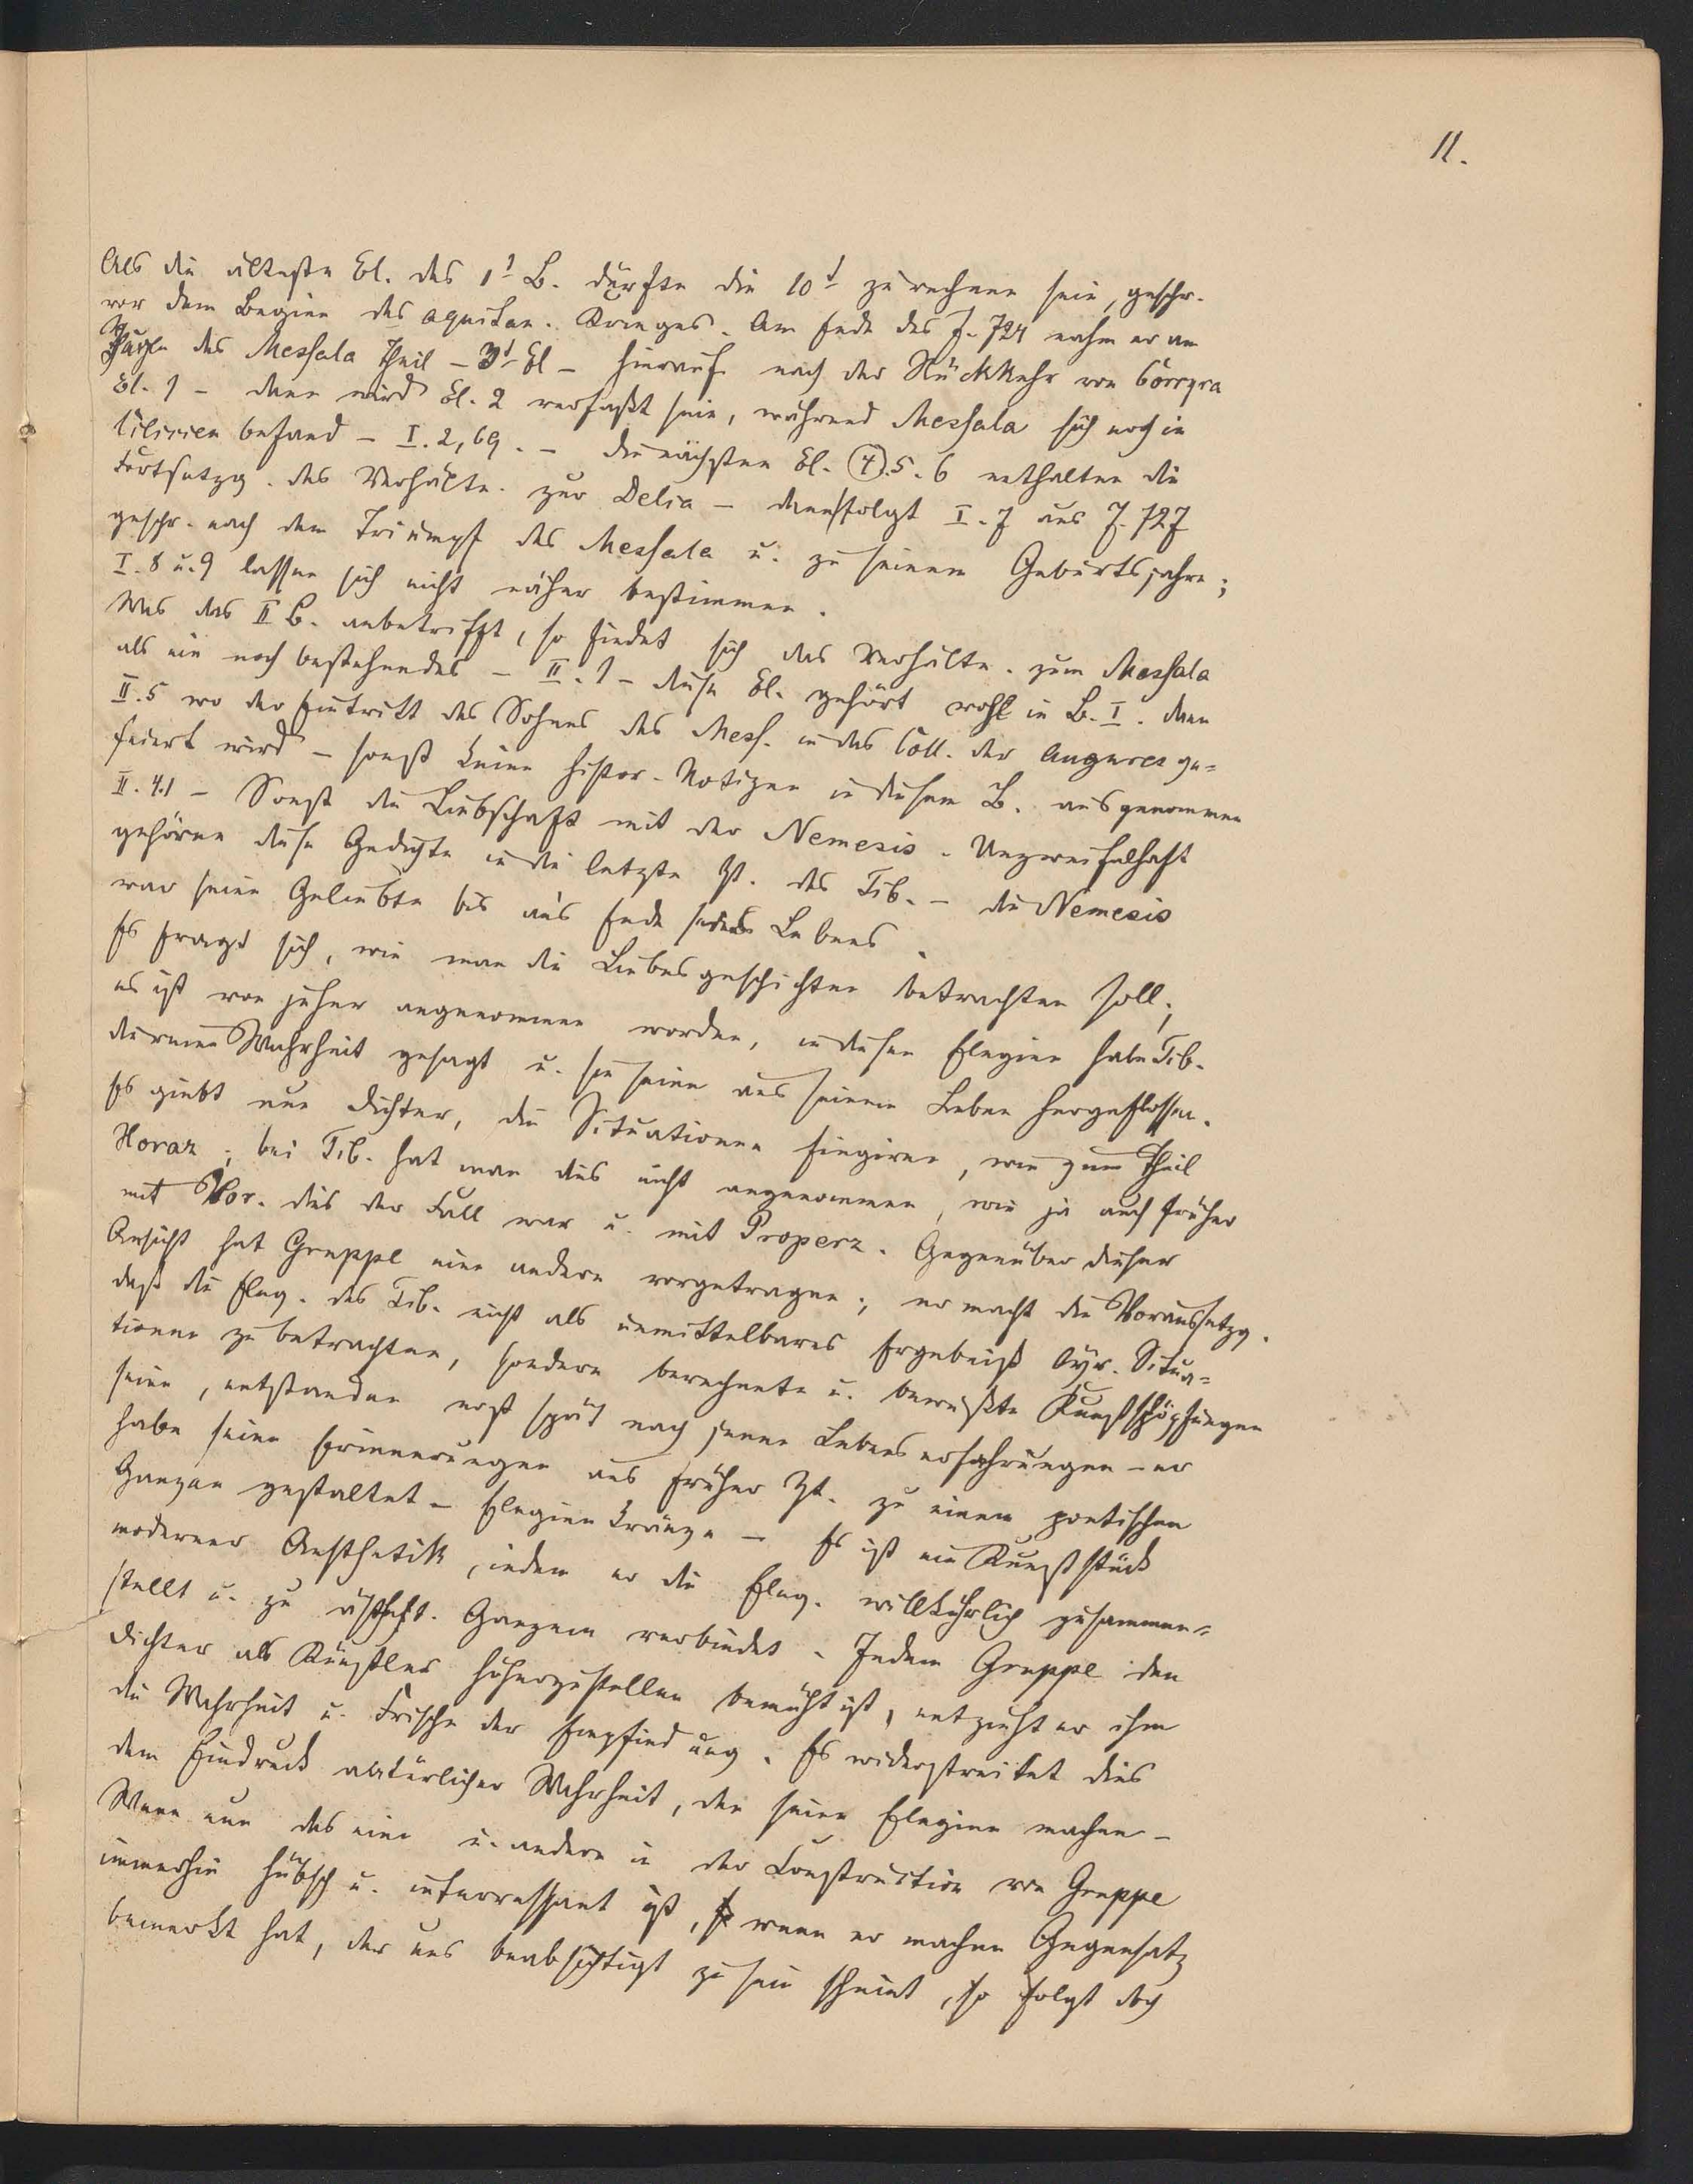 11.
Als die älteste El. des 1t B. dürfte die 10t zu rechnen sein, geschr.
vor dem Beginn des aquitan. Krieges. Am Ende des J. 724 nahm er am
Zuge des Messala Theil – 3t El – hierauf nach der Rückkehr von Corcyra
El. 1 – dann wird El. 2 verfaßt sein, während Messala sich noch in
Cilicien befand – I. 2, 69. – die nächsten El. 4. 5. 6 enthalten die
Fortsetzg. des Verhältn. zur Delia – dann folgt I. 7 aus J. 727
geschr. nach dem Triumpf des Messala u. zu seinem Geburtsjahre;
I. 8 u. 9 lassen sich nicht näher bestimmen.
Was das II B. anbetrifft, so findet sich das Verhältn. zum Messala
als ein noch bestehendes – II. 1 – diese El. gehört wohl in B. I. dann
II. 5 wo der Eintritt des Sohnes des Mess. in das Coll. der Augures ge=
feiert wird – sonst keine histor. Notizen in diesem B. ausgenommen
II. 4.1 – Sonst die Liebschaft mit der Nemesis. Unzweifelhaft
gehören diese Gedichte in die letzte Zt. des Tib. – die Nemesis
war seine Geliebte bis ans Ende seines Lebens.
Es fragt sich, wie man die Liebesgeschichten betrachten soll;
es ist von jeher angenommen worden, in diesen Elegien habe Tib.
die reine Wahrheit gesagt u. sie seien aus seinem Leben hergeflossen.
Es giebt nun Dichter, die Situationen fingiren, wie zum Theil
Horaz; bei Tib. hat man dies nicht angenommen, wie ja auch früher
mit Hor. dies der Fall war u. mit Properz. Gegenüber dieser
Ansicht hat Gruppe eine andere vorgetragen; er macht die Voraussetzg.
daß die Eleg. des Tib. nicht als unmittelbares Ergebniß lyr. Situa=
tionen zu betrachten, sondern berechnete u. bewußte Kunstschöpfungen
seien, entstanden erst spät nach jenen Lebenserfahrungen – er
habe seine Erinnerungen aus früher Zt. zu einem poetischen
Ganzen gestaltet – Elegienkränze – Es ist ein Kunststück
moderner Aesthetik, indem er die Eleg. willkührlich zusammen=
stellt u. zu ästhet. Ganzem verbindet. Indem Gruppe den
Dichter als Künstler höherzustellen bemüht ist, entzieht er ihm
die Wahrheit u. Frische der Empfindung. Es widerstreitet dies
dem Eindruck natürlicher Wahrheit, den seine Elegien machen –
Wenn nun das eine u. andere in der Construction von Gruppe
immerhin hübsch u. interressant ist, wenn er machen Gegensatz
bemerkt hat, der uns beabsichtigt zu sein scheint, so folgt doch